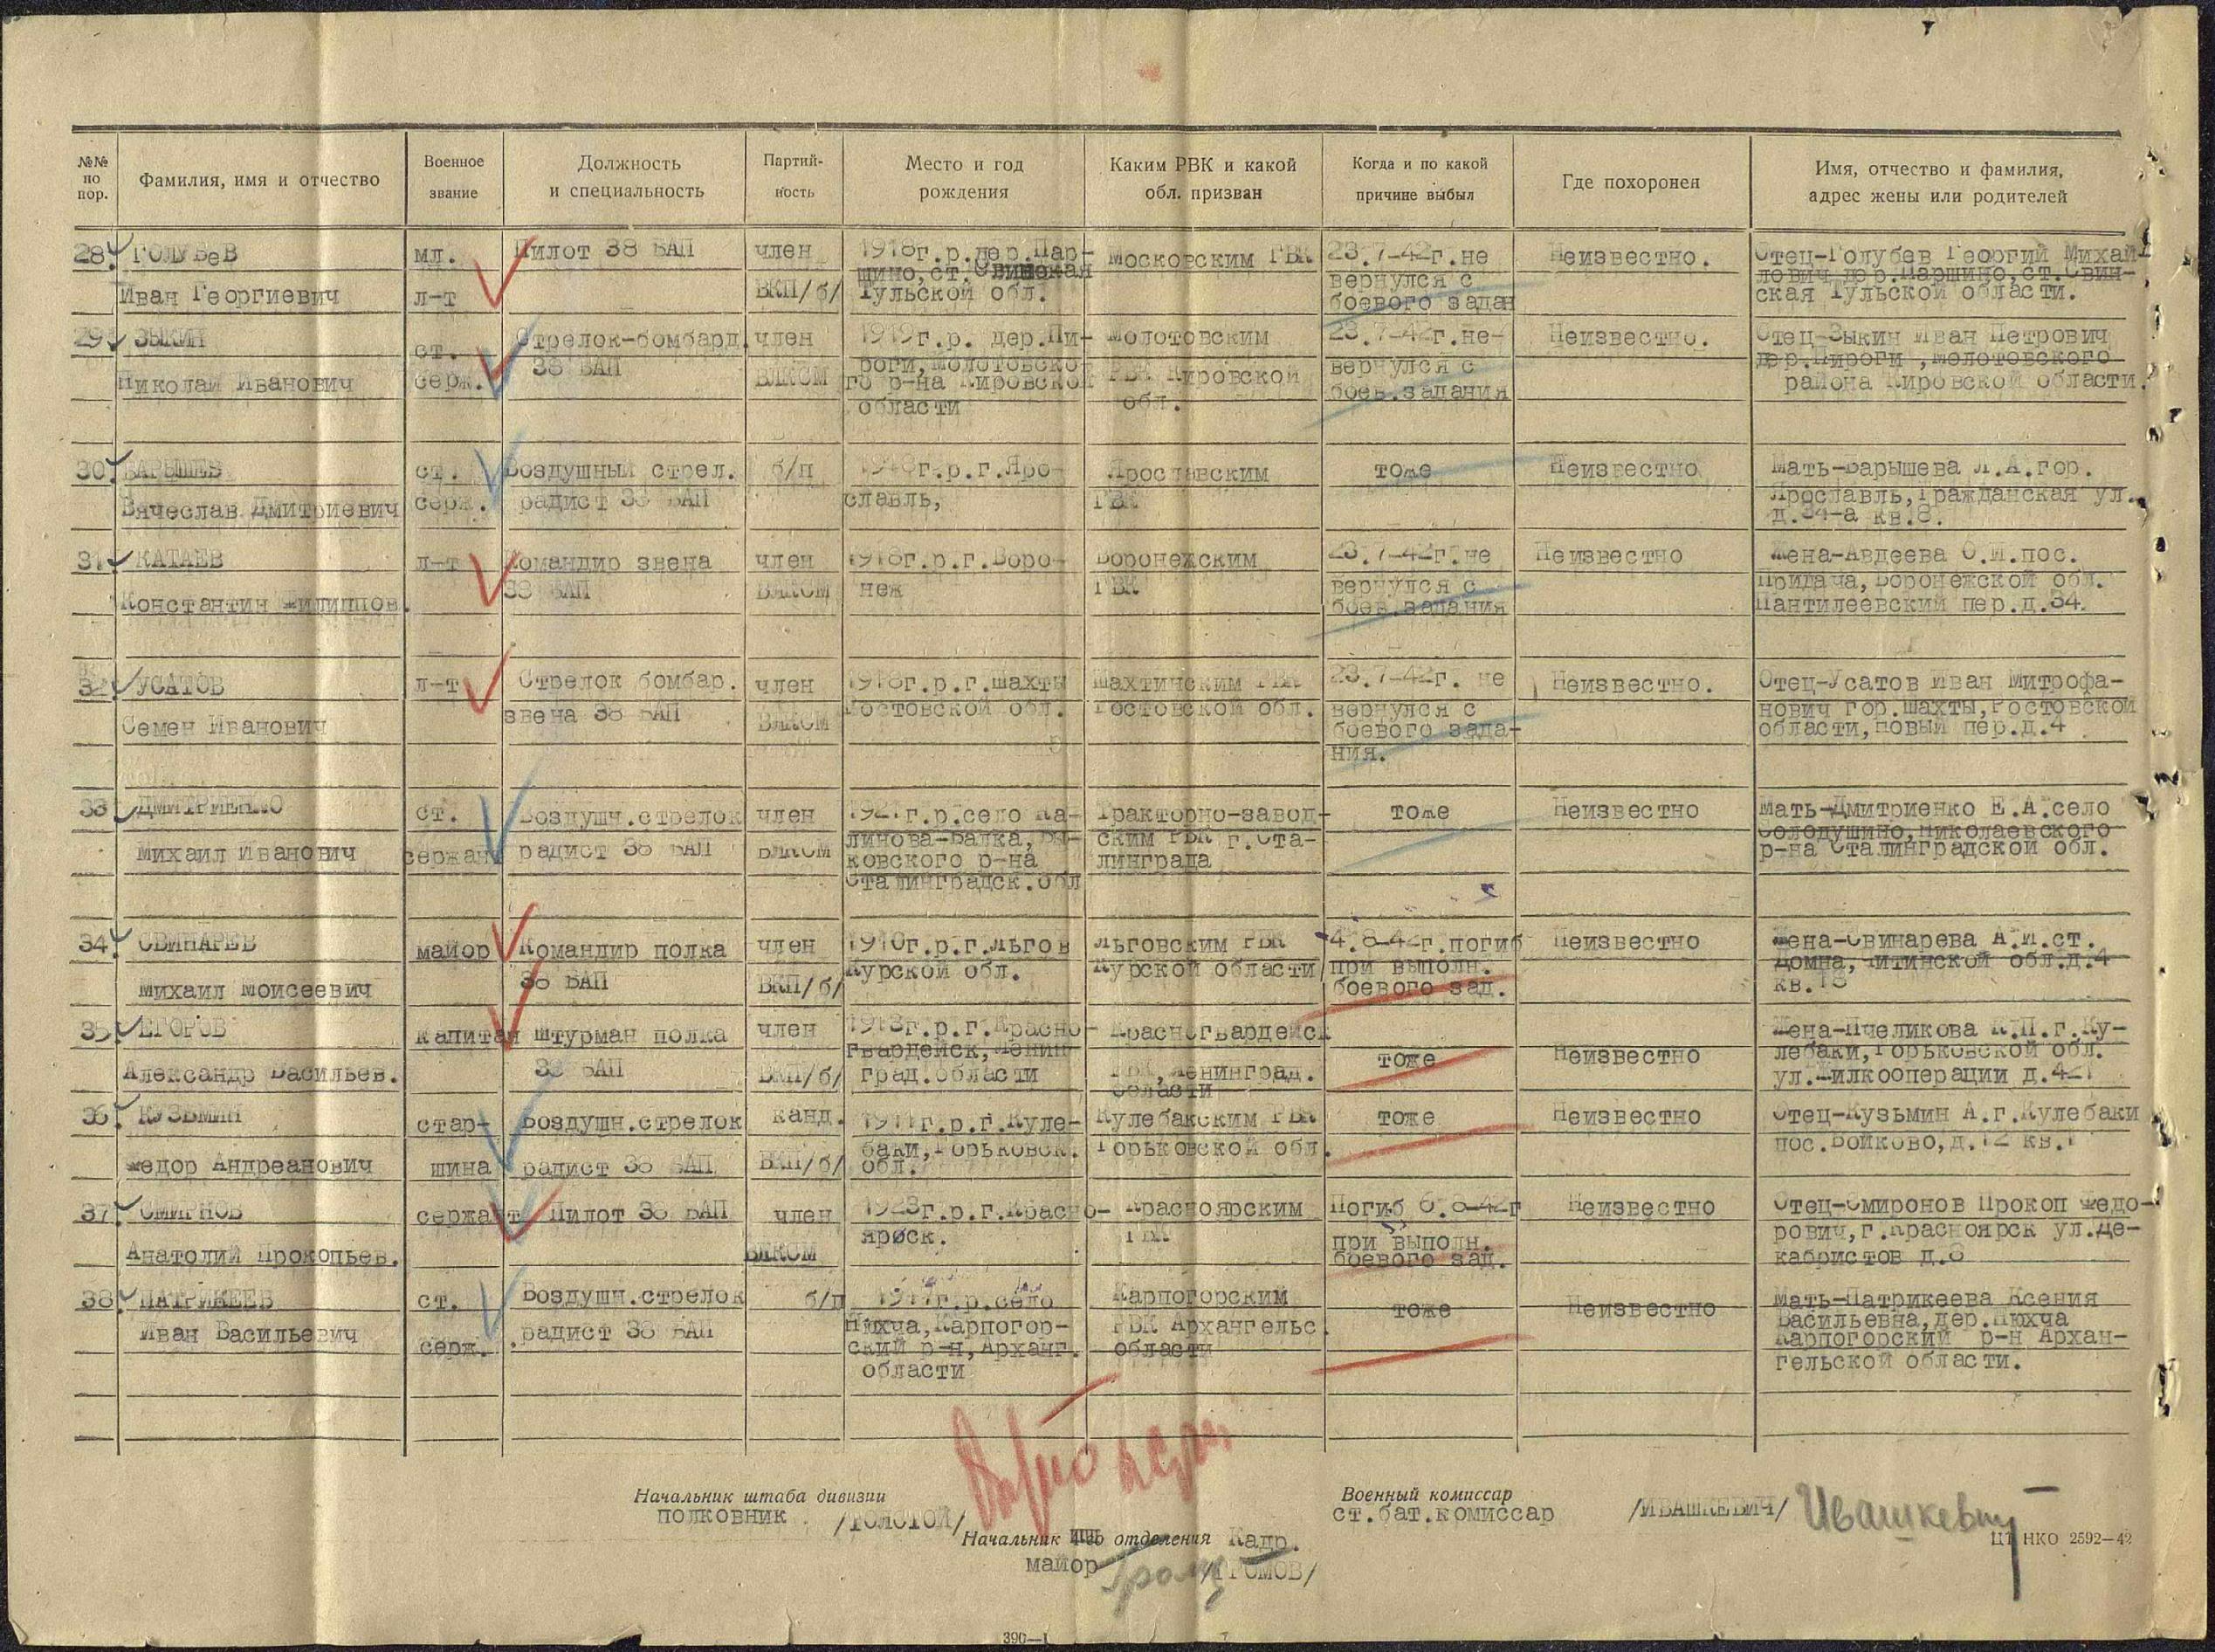 №№ по пор.
Фамилия, имя и отчество
Военное звание
Должность и специальность
Партий-ность
Место и год рождения
Каким РВК и какой обл. призван
Когда и по какой причине выбыл
Где похоронен
Имя, отчество и фамилия, адрес жены или родителей
28. ГОЛУБеВ
Иван Георгиевич
мл.
л-т
Пилот 38 БАП
член
ВКП/б/
1918г.р.дер.Пар-
шино,ст.Свинская
Тульской обл.
Московским РВК
23.7-42г.не
вернулся с
боевого задан
Неизвестно.
Отец-Голубев Георгий Михай
лович дер.Паршино,ст.Свин-
ская Тульской области.
29. ЗЫКИН
Николай Иванович
ст.
серж.
Стрелок-бомбард.
38 БАП
член
ВЛКСМ
1919г.р. дер.Пи-
роги,Молотовско-
го р-на Кировской
области
Молотовским
РВК Кировской
обл.
23.7-42г.не-
вернулся с
боев.задания
Неизвестно.
Отец-Зыкин Иван Петрович
дер.Пироги ,Молотовского
района Кировской области.
30. БАРЫШЕВ
Вячеслав Дмитриевич
ст.
серж.
Воздушный стрел.
радист 38 БАП
б/п
г.р.г.Яро-
славль,
Ярославским
РВК
тоже
Неизвестно
Мать-Барышева Л.А.гор.
Ярославль,Гражданская ул.
д.34-а кв.8.
31. КАТАЕВ
Константин Филиппов.
л-т
Командир звена
38 БАП
член
ВЛКСМ
1918г.р.г.Воро-
неж
Воронежским
РВК
23.7-42г.не
вернулся с
боев.задания
Неизвестно
Жена-Авдеева О.И.пос.
Придача,Воронежской обл.
Пантилеевский пер.д.34.
32. УСАТОВ
Семен Иванович
л-т
Стрелок бомбар.
звена 38 БАП
член
ВЛКСМ
1918г.р.г.шахты
Ростовской обл.
Шахтинским РВК
Ростовской обл.
23.7-42г. не
вернулся с
боевого зада-
ния.
Неизвестно.
Отец-Усатов Иван Митрофа-
нович гор.Шахты,Ростовской
области,новый пер.д.4
33. ДМИТРИЕНКО
Михаил Иванович
ст.
сержант
Воздушн.стрелок
радист 38 БАП
член
ВЛКСМ
1921г.р.село Ка-
линова-Балка,Бы-
ковского р-на
Сталинградск.обл
Тракторно-завод-
ским РВК г.Ста-
линграда
тоже
Неизвестно
Мать-Дмитриенко Е.А.село
Солодушино,Николаевского
р-на Сталинградской обл.
34. СВИНАРЕВ
Михаил Моисеевич
майор
Командир полка
38 БАП
член
ВКП/б/
1910г.р.г.Льгов
Курской обл.
Льговским РВК
Курской области
4.8-42г.погиб
при выполн.
боевого зад.
Неизвестно
Жена-Свинарева А.И.ст.
Домна,Читинской обл.д.4
кв.18
35. ЕГОРОВ
Александр Васильев.
капитан
штурман полка
38 БАП
член
ВКП/б/
1913г.р.г.Красно-
гвардейск,Ленин
град.области
Красногвардейск
РВК,Ленинград.
области
тоже
Неизвестно
Жена-Пчеликова К.П.г.Ку-
лебаки,Горьковской обл.
ул.Жилкооперации д.42
36. КУЗЬМИН
Федор Андреанович
стар-
шина
Воздушн.стрелок
радист 38 БАП
канд.
ВКП/б/
1911г.р.г.Куле-
баки,Горьковск.
обл.
Кулебакским РВК
Горьковской обл.
тоже
Неизвестно
Отец-Кузьмин А.г.Кулебаки
пос.Войково,д.12 кв.1
37. СМИРНОВ
Анатолий Прокопьев.
сержант
Пилот 38 БАП
член
ВЛКСМ
1923г.р.г.Красно-
ярøск.
Красноярским
РВК
Погиб 6.8-42г
при выполн.
боевого зад.
Неизвестно
Отец-Смиронов Прокоп Федо-
рович,г.Красноярск ул.Де-
кабристов д.6
38. ПАТРИКЕЕВ
Иван Васильевич
ст.
серж.
Воздушн.стрелок
радист 38 БАП
б/п
г.р.село
Нюхча,Карпогор-
ский р-н,Арханг.
области
Карпогорским
РВК Архангельс.
области
тоже
Неизвестно
Мать-Патрикеева Ксения
Васильевна,дер.Нюхча
Карпогорский р-н Архан-
гельской области.
Начальник штаба дивизии
полковник /ТОЛСТОЙ/
Военный комиссар
ст.бат.комиссар /ИВАШКЕВИЧ/ Ивашкевич
Начальник отделения Кадр.
майор /ГРОМОВ/
НКО 2592—42
390—1